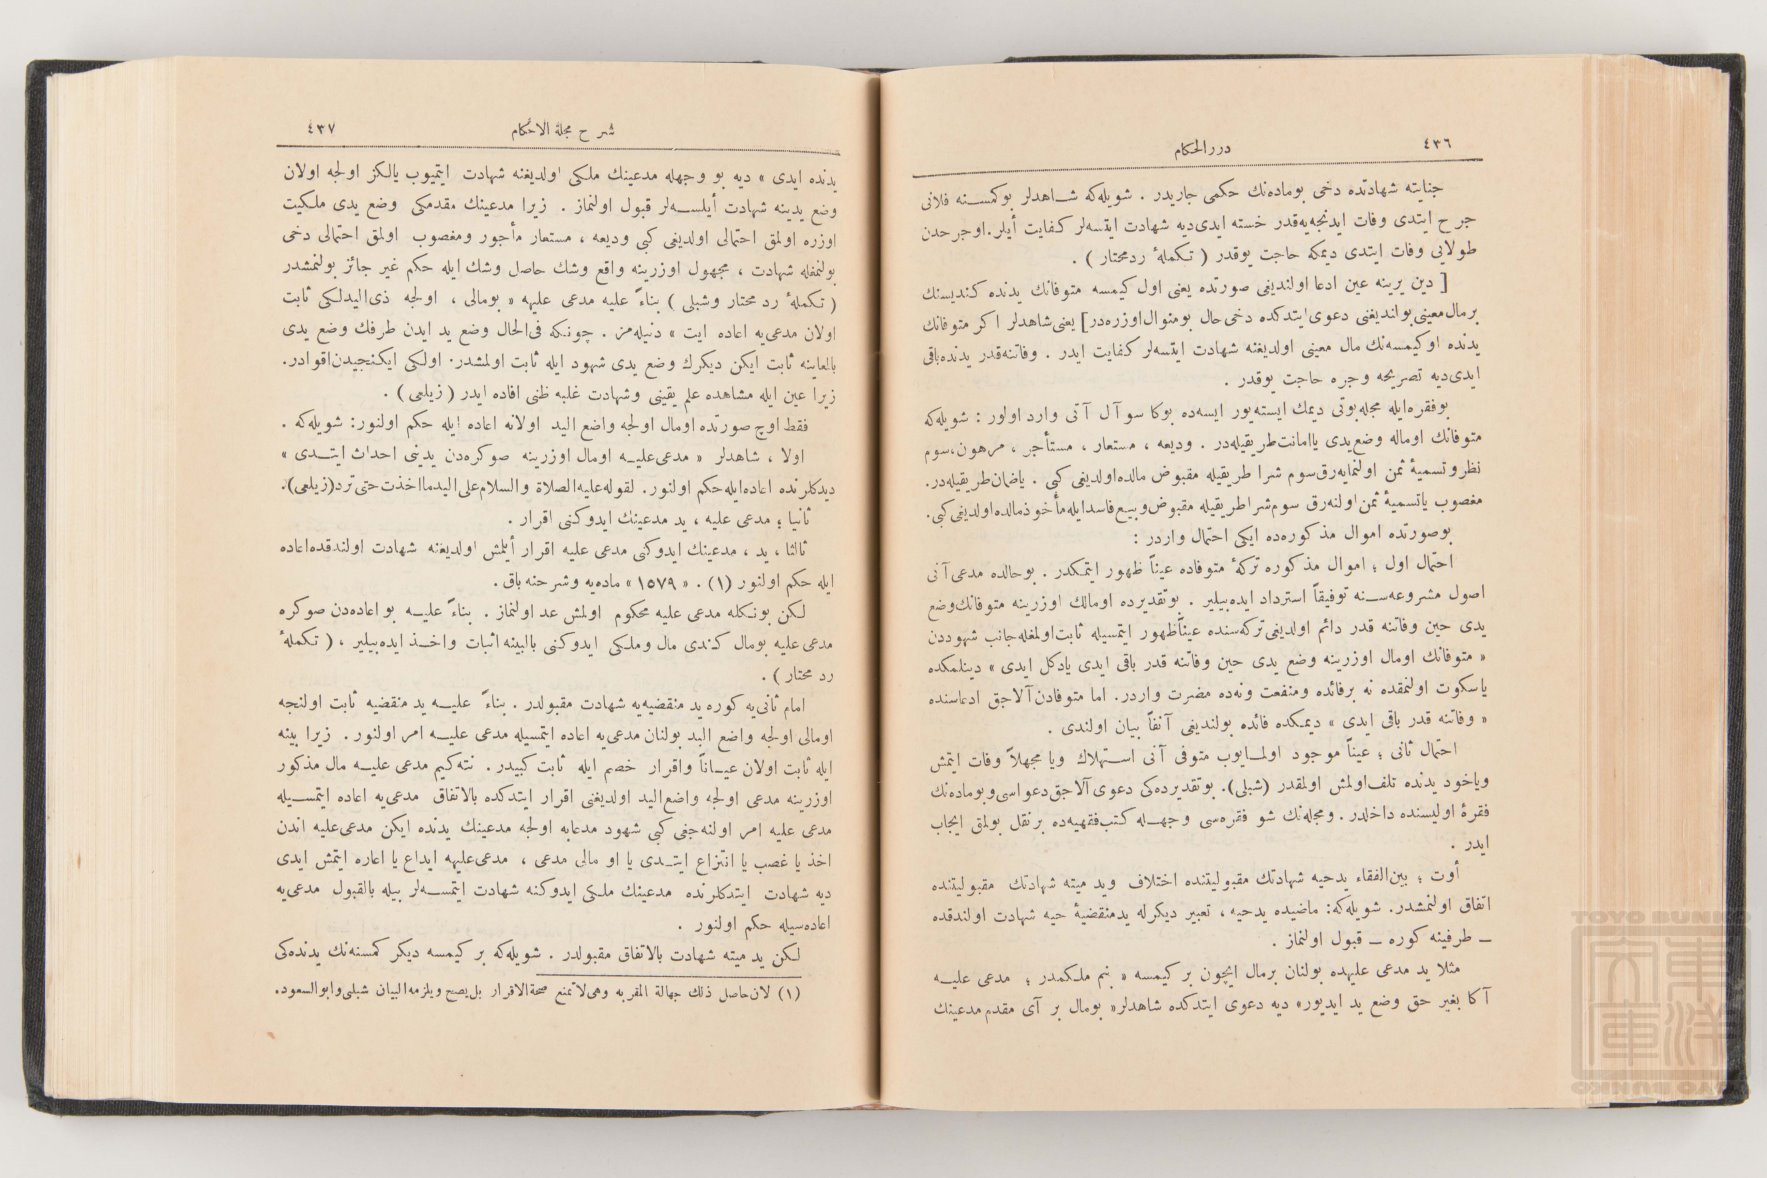 ٤٣٦
دررالحكام
جنايته شهادتده دخى بوماده‌نك حكمى جاريدر . شويله‌كه شاهدلر بوكمسنه فلانى
جرح ايتدى وفات ايدنجه‌يه‌قدر خسته ايدى‌ديه شهادت ايتسه‌لر كفايت أيلر. اوجرحدن
طولايى وفات ايتدى ديمكه حاجت يوقدر ( تكملۀ ردمختار ) .
[ دين يرينه عين ادعا اولنديغى صورتده يعنى اول كيمسه متوفانك يدنده كنديسنك
برمال‌معينى‌بولنديغنى دعوى‌ايتدكده دخى‌حال بومنوال‌اوزره‌در] يعنى‌شاهدلر اكر متوفانك
يدنده اوكيمسه‌نك مال معينى اولديغنه شهادت ايتسه‌لر كفايت ايدر . وفاتنه‌قدر يدنده‌باقى
ايدى‌ديه تصريحه وجره حاجت يوقدر .
بوفقره‌ايله مجله‌بوتى ديمك ايسته‌يور ايسه‌ده بوكا سوآل آتى وارد اولور : شويله‌كه
متوفانك اوماله وضع‌يدى ياامانت‌طريقيله‌در . وديعه ، مستعار ، مستأجر ، مرهون،سوم
نظر وتسميۀ ثمن اولنمايه‌رق‌سوم شرا طريقيله مقبوض مالده‌اولديغى كبى . ياضمان‌طريقيله‌در.
مغصوب ياتسميۀ ثمن‌اولنه‌رق سوم‌شراطريقيله مقبوض‌وبيع‌فاسدايله‌مأخوذمالده‌اولديغى‌كبى.
بوصورتده اموال مذكوره‌ده ايكى احتمال واردر :
احتمال اول ؛ اموال مذكوره تركۀ متوفاده عيناً ظهور ايتمكدر . بوحالده مدعى آنى
اصول مشروعه‌سنه توفيقاً استرداد ايده‌بيلير . بوتقديرده اومالك اوزرينه متوفانك‌وضع
يدى حين وفاتنه قدر دائم اولديغى‌تركه‌سنده عيناًظهور ايتمسيله ثابت‌اولمغله‌جانب شهوددن
« متوفانك اومال اوزرينه وضع يدى حين وفاتنه قدر باقى ايدى يادكل ايدى » دينلمكده
ياسكوت اولنمقده نه برفائده ومنفعت ونه‌ده مضرت واردر. اما متوفادن‌آلاجق ادعاسنده
« وفاتنه قدر باقى ايدى » ديمكده فائده بولنديغى آنفاً بيان اولندى .
احتمال ثانى ؛ عيناً موجود اولمايوب متوفى آنى استهلاك ويا مجهلاً وفات ايتمش
وياخود يدنده تلف‌اولمش اولمقدر (شبلى). بوتقديرده‌كى دعوى آلاجق‌دعواسى‌وبوماده‌نك
فقرۀ اوليسنده داخلدر . ومجله‌نك شو فقره‌سى وجهله كتب‌فقهيه‌ده برنقل بولمق ايجاب
ايدر .
أوت ؛ بين‌الفقاء يدحيه شهادتك مقبوليتنده اختلاف ويد ميته شهادتك مقبوليتنده
اتفاق اولنمشدر. شويله‌كه: ماضيده يدحيه ، تعبير ديكرله يدمنقضيۀ حيه شهادت اولندقده
ــ طرفينه كوره ــ قبول اولنماز .
مثلا يد مدعى عليهده بولنان برمال ايچون بر كيمسه « بنم ملكمدر ؛ مدعى عليه
آكا بغير حق وضع يد ايديور» ديه دعوى ايتدكده شاهدلر« بومال بر آى مقدم مدعينك
٤٣٧
شرح مجلة الاحكام
يدنده ايدى » ديه بو وجهله مدعينك ملكى اولديغنه شهادت ايتميوب يالكز اولجه اولان
وضع يدينه شهادت أيلسه‌لر قبول اولنماز . زيرا مدعينك مقدمكى وضع يدى ملكيت
اوزره اولمق احتمالى اولديغى كبى وديعه ، مستعار مأجور ومغصوب اولمق احتمالى دخى
بولنمغله شهادت ، مجهول اوزرينه واقع وشك حاصل وشك ايله حكم غير جائز بولنمشدر
( تكملۀ رد محتار وشبلى ) بناءً عليه مدعى عليهه « بومالى ، اولجه ذى‌اليدلكى ثابت
اولان مدعى‌يه اعاده ايت » دنيله‌مز . چونكه فى‌الحال وضع يد ايدن طرفك وضع يدى
بالمعاينه ثابت ايكن ديكرك وضع يدى شهود ايله ثابت اولمشدر. اولكى ايكنجيدن‌اقوادر.
زيرا عين ايله مشاهده علم يقينى وشهادت غلبه ظنى افاده ايدر ( زيلعى ) .
فقط اوچ صورتده اومال اولجه واضع اليد اولانه اعاده ايله حكم اولنور: شويله‌كه .
اولا ، شاهدلر « مدعى‌عليه اومال اوزرينه صوكره‌دن يدينى احداث ايتدى »
ديدكلرنده اعاده‌ايله‌حكم اولنور. لقوله‌عليه‌الصلاة والسلام‌على‌اليدمااخذت‌حتى‌ترد(زيلعى).
ثانيا ؛ مدعى عليه ، يد مدعينك ايدوكنى اقرار .
ثالثا ، يد ، مدعينك ايدوكنى مدعى عليه اقرار أيلمش اولديغنه شهادت اولندقده‌اعاده
ايله حكم اولنور (١) . « ١٥٧٩ » ماده‌يه وشرحنه باق .
لكن بونكله مدعى عليه محكوم اولمش عد اولنماز . بناءً عليه بو اعاده‌دن صوكره
مدعى عليه بومال كندى مال وملكى ايدوكنى بالبينه اثبات واخذ ايده‌بيلير ، ( تكملۀ
رد محتار ) .
امام ثانى‌يه كوره يد منقضيه‌يه شهادت مقبولدر . بناءً عليه يد منقضيه ثابت اولنجه
اومالى اولجه واضع اليد بولنان مدعى‌يه اعاده ايتمسيله مدعى عليه امر اولنور . زيرا بينه
ايله ثابت اولان عياناً واقرار خصم ايله ثابت كبيدر . نته‌كيم مدعى عليه مال مذكور
اوزرينه مدعى اولجه واضع‌اليد اولديغنى اقرار ايتدكده بالاتفاق مدعى‌يه اعاده ايتمسيله
مدعى عليه امر اولنه‌جغى كبى شهود مدعابه اولجه مدعينك يدنده ايكن مدعى‌عليه اندن
اخذ يا غصب يا انتزاع ايتدى يا او مالى مدعى ، مدعى‌عليهه ايداع يا اعاره ايتمش ايدى
ديه شهادت ايتدكلرنده مدعينك ملكى ايدوكنه شهادت ايتمسه‌لر بيله بالقبول مدعى‌يه
اعاده‌سيله حكم اولنور .
لكن يد ميته شهادت بالاتفاق مقبولدر . شويله‌كه بر كيمسه ديكر كمسنه‌نك يدنده‌كى
(١) لان‌حاصل ذلك جهالة المقربه وهى‌لاتمنع صحة‌الاقرار بل‌يصح‌ويلزمه‌البيان شبلى‌وابوالسعود.
TOYO BUNKO
東洋文庫